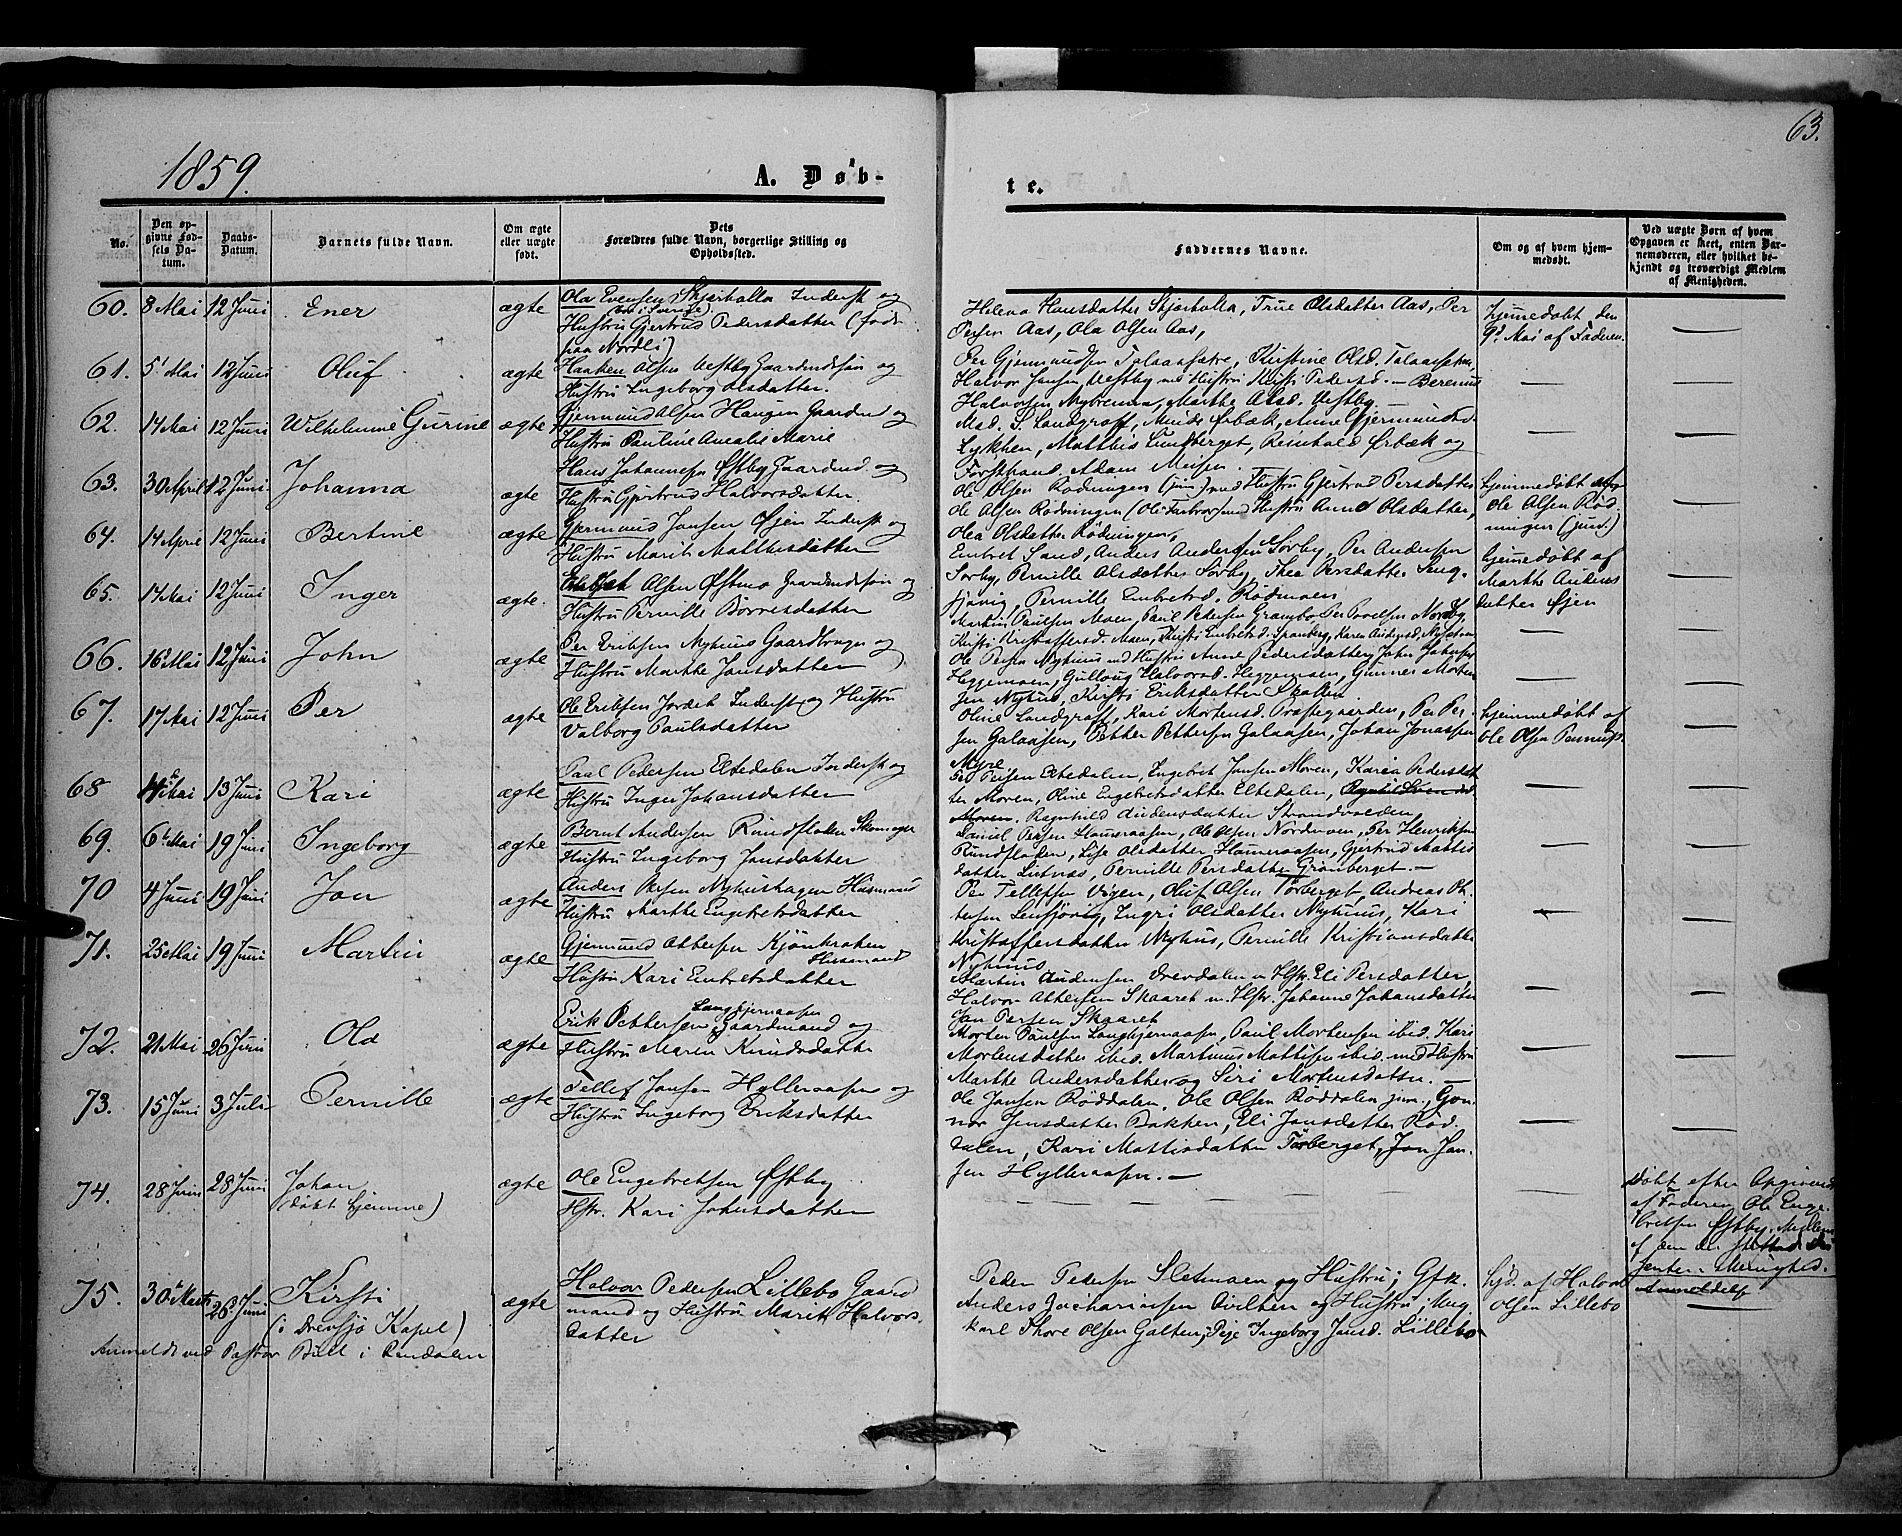 63.
1859.
A. Døb-
te.
No.
Den op-
givne Fød-
sels Da-
tum.
Daabs-
Datum.
Barnets fulde Navn.
Om ægte
eller uægte
født.
Dets
Forældres fulde Navn, borgerlige Stilling og
Opholdssted.
Faddernes Navne.
Om og af hvem hjem-
medøbt.
Ved uægte Børn af hvem
Opgaven er skeet, enten Bar-
nemoderen, eller hvilket be-
kjendt og troværdigt Medlem
af Menigheden.
60. 8 Mai 12 Juni Ener ægte
Ola Evensen Skjærholla Inderst og
Hustru Gjertrud Pedersdatter (født
paa Nordli)
Helena Hansdatter Skjærholla, True Olsdatter Aas, Per
Persen Aas, Ola Olsen Aas,
hjemmedøbt den
9d Mai af Faderen.
61. 5 Mai 12 Juni Oluf ægte
Haaken Olsen Vestby Gaardmdssøn og
Hustru Ingeborg Olsdatter.
Per Gjermundsen Kirstine Olsd.
Halvor Jensen Vestby med Hustru Kirsti Pedersd. — Berenus
Halvorsen Nybrenna, Marthe Olsd. Vestby —
62. 14 Mai 12 Juni Wilhelmine Gurine ægte
Gjermund Olsen Haugen Gaardmd og
Hustru Pauline Amalie Marie
Mad. S. Landgraff, Minde Ørbæk, Anne Gjermundsd.
Lykken, Matthis Lundberget, Reinhold Ørbæk og
Forstkand. Adam
63. 30 April 12 Juni Johanna ægte
Hans Johannesen Østby Gaardmd. og
Hustru Gjertrud Halvorsdatter.
Ole Olsen Rødningen (jun) med Hustru Gjertrud Persdatter
Ole Olsen Rødningen med Hustru Anne Olsdatter,
Olea Olsdatter Rødningen,
hjemmedøbt af
Ole Olsen Rød-
ningen (jun.)
64. 14 April 12 Juni Bertine ægte
Gjermund Jensen Øjen Inderst og
Hustru Marit Matthisdatter
Embret Sand, Anders Andersen Sørby, Per Andersen
Sørby, Pernille Olsdatter Sørby, Thea Persdatter Seng-
sjøvig, Pernille Embretsd. Rødmoen
hjemmedøbt af
Marthe Anders-
datter Øjen
65. 14 Mai 12 Juni Inger ægte.
Olsen Østmo Gaardmdssøn og
Hustru Pernille Børresdatter
Martin Paulsen Moen, Paul Pedersen Grambo, Per Povelsen Nordby,
Kirsti Kristoffersd. Moen, Kirsti Embretsd. Karen Andersd. Nysæteren
66. 16 Mai 12 Juni John ægte
Per Eriksen Nyhuus Gaardbruger og
Hustru Marthe Jonsdatter
Ole Persen Nyhuus med Hustru Anne Pedersdatter, John Johnsen
Heggemoen, Gullaug Halvorsd. Heggemoen, Gunner Morten-
sen Nyhus, Kirsti Eriksdatter Skolla
67. 17 Mai 12 Juni Per ægte
Ole Eriksen Jordet Inderst og Hustru
Valborg Paulsdatter
Oline Landgraff, Kari Mortensd. Præstegaarden, Per Per-
sen Galaasen, Petter Pettersen Galaasen, Johan Jonassen
Myre
hjemmedøbt af
Ole Olsen
68 4 Mai 13 Juni Kari ægte
Paal Pedersen Eltedalen Inderst og
Hustru Inger Johansdatter
Per Persen Eltedalen, Engebret Jonsen Moren, Karia Pedersdat-
ter Moren, Oline Engebretsdatter Eltedalen,
Moren. Ragnhild Audensdatter Strandvolden
69. 6 Mai 19 Juni Ingeborg ægte
Bernt Andersen Rundfloden Skomager
Hustru Ingeborg Jonsdatter
Daniel Persen Hameraasen, Ole Olsen Nordmoen, Per Henriksen
Rundfloden, Lise Olsdatter Hameraasen, Gjertrud Mattis-
datter Lutnæs, Pernille Persdatter Grønberget. —
70 4 Juni 19 Juni Jon ægte
Anders Persen Nyhushagen Huusmand
Hustru Marthe Engebretsdatter
Per Tellefsen Vigen, Oluf Olsen Tørberget, Andreas Pe-
tersen Lensjøvig, Ingri Olsdatter Nyhuus, Kari
Kristoffersdatter Nyhus, Pernille Kristiansdatter
Nyhuus
71. 25 Mai 19 Juni Martin ægte
Gjermund Ottersen Kjønkroken
Huusmand
Hustru Kari Embretsdatter
Martin Audensen Drevdalen m. Hstr. Eli Persdatter,
Halvor Ottersen Skaaret m. Hstr. Johanne Johansdatter
Jon Persen Skaaret
72. 21 Mai 26 Juni Ola ægte
Langtjernaasen
Erik Pettersen Gaardmand og
Hustru Maren Knudsdatter
Morten Paulsen Langtjernaasen, Paul Mortensen ibid. Kari
Mortensdatter ibid. Martinus Mattisen ibid. med Hustru
Marthe Andersdatter og Siri Mortensdatter. —
73. 15 Juni 3 Juli Pernille ægte
Tellef Jonsen Hylleraasen og
Hustru Ingeborg Eriksdatter
Ole Jonsen Røddalen, Ole Olsen Røddalen jun., Gun-
nor Jensdatter Bakken, Eli Jonsdatter Rød-
dalen, Kari Mattisdatter Tørberget, Jon Jon-
sen Hylleraasen. —
74. 28 Juni 28 Juni Johan
(døbt hjemme) ægte
Ole Engebretsen Østby
Hstr. Kari Johnsdatter
Døbt efter Opgivende
af Faderen Ole Enge-
bretsen Østby, Medlem
af den
senter Menighed.
Anmeldelse
75. 30 Marts 26 Juni Kirsti
(i Drevsjø Kapel) ægte
Halvor Pedersen Lillebo Gaard-
mand og Hustru Marit Halvors-
datter
Peder Pedersen Sletmoen og Hustru; Gfk.
Anders Zachariassen Kvilten og Hustru; Ung-
karl Thore Olsen Galten; Pige Ingeborg Jonsd. Lillebo
hjd. af Halvor
Olsen Lillebo
Anmeldt ved Pastor Bull i Rendalen